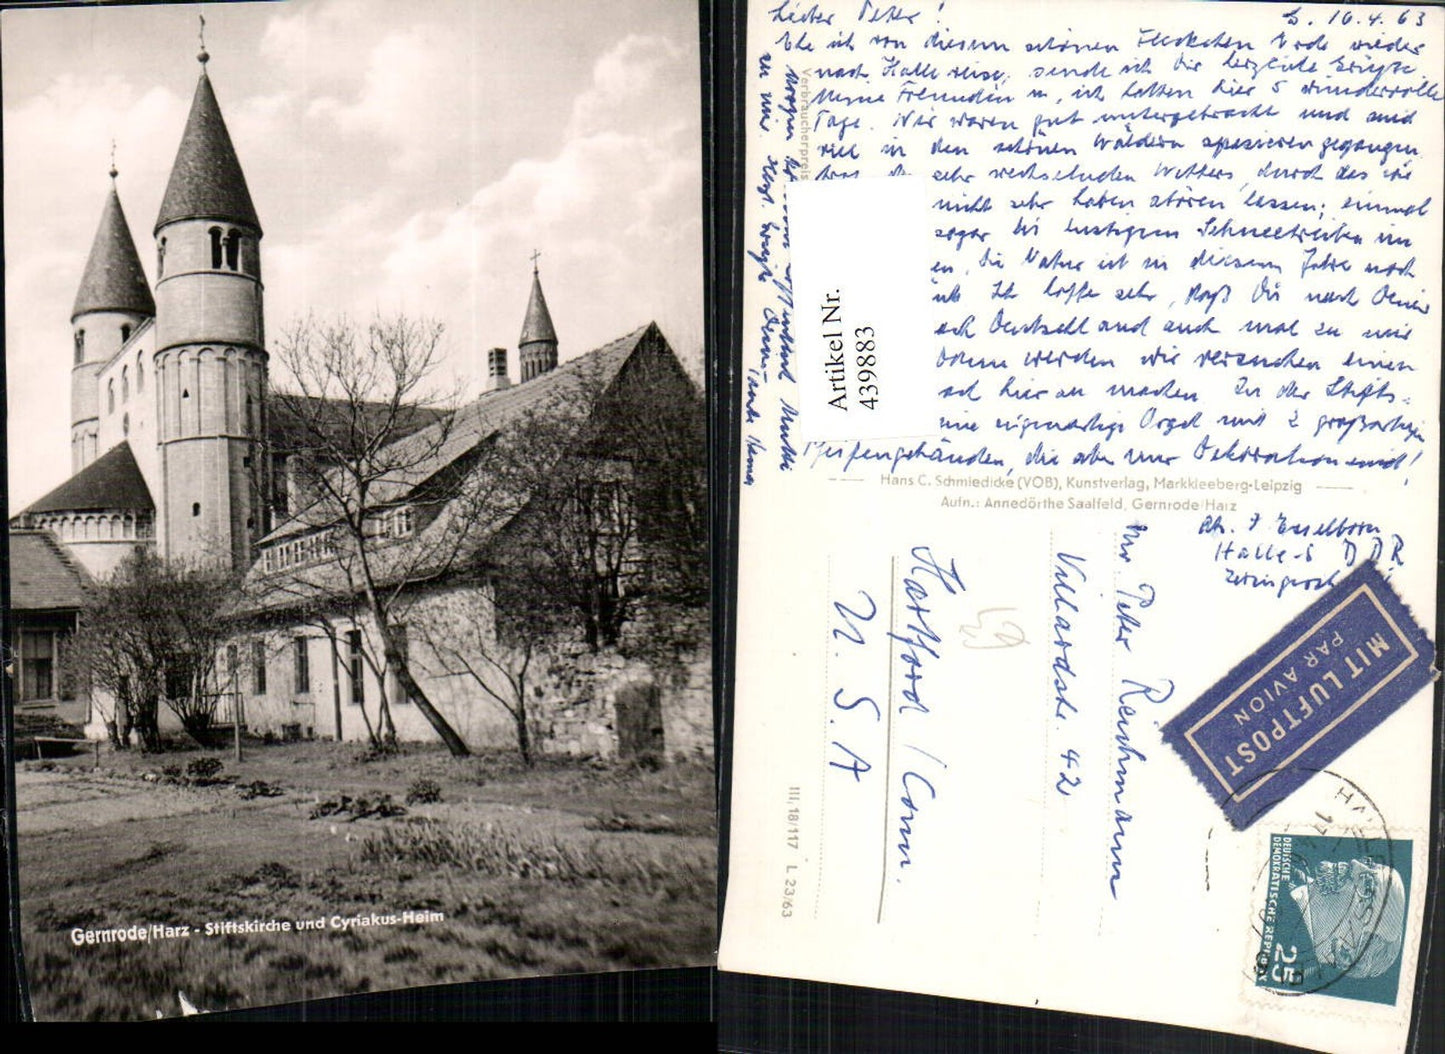 Gernrode/Harz - Stiftskirche und Cyriakus-Heim
Lieber Peter! 10.4.63
Ehe ich von diesem schönen Fleckchen Erde wieder
nach Halle reise, sende ich Dir herzliche Grüße.
Meine Freundin u. ich hatten hier 5 wundervolle
Tage. Wir waren gut untergebracht und sind
viel in den schönen Wäldern spazieren gegangen
sehr wechselnden Wetters, durch das wir
nicht sehr haben stören lassen; einmal
sogar bei lustigem Schneetreiben im
en, die Natur ist in diesem Jahre noch
Ich hoffe sehr, daß Du nach Deiner
ach Deutschland auch mal zu mir
Dann werden wir versuchen einen
hier zu machen. In der Stifts-
eine eigenartige Orgel mit 2 großartigen
Pfeifengebäuden, die aber nur Dekoration sind!
Morgen
zu mir. Herzl. Grüße Deine Tante
Verbraucherpreis
Artikel Nr.
439883
Hans C. Schmiedicke (VOB), Kunstverlag, Markkleeberg-Leipzig
Aufn.: Annedörthe Saalfeld, Gernrode/Harz
Abs. Esselborn
Halle-S DDR
Mr. Peter Reichmann
Villardstr. 42
Hartford / Conn.
U. S. A
MIT LUFTPOST
PAR AVION
III/18/117 L 23/63
DEUTSCHE
DEMOKRATISCHE REPUBLIK
25